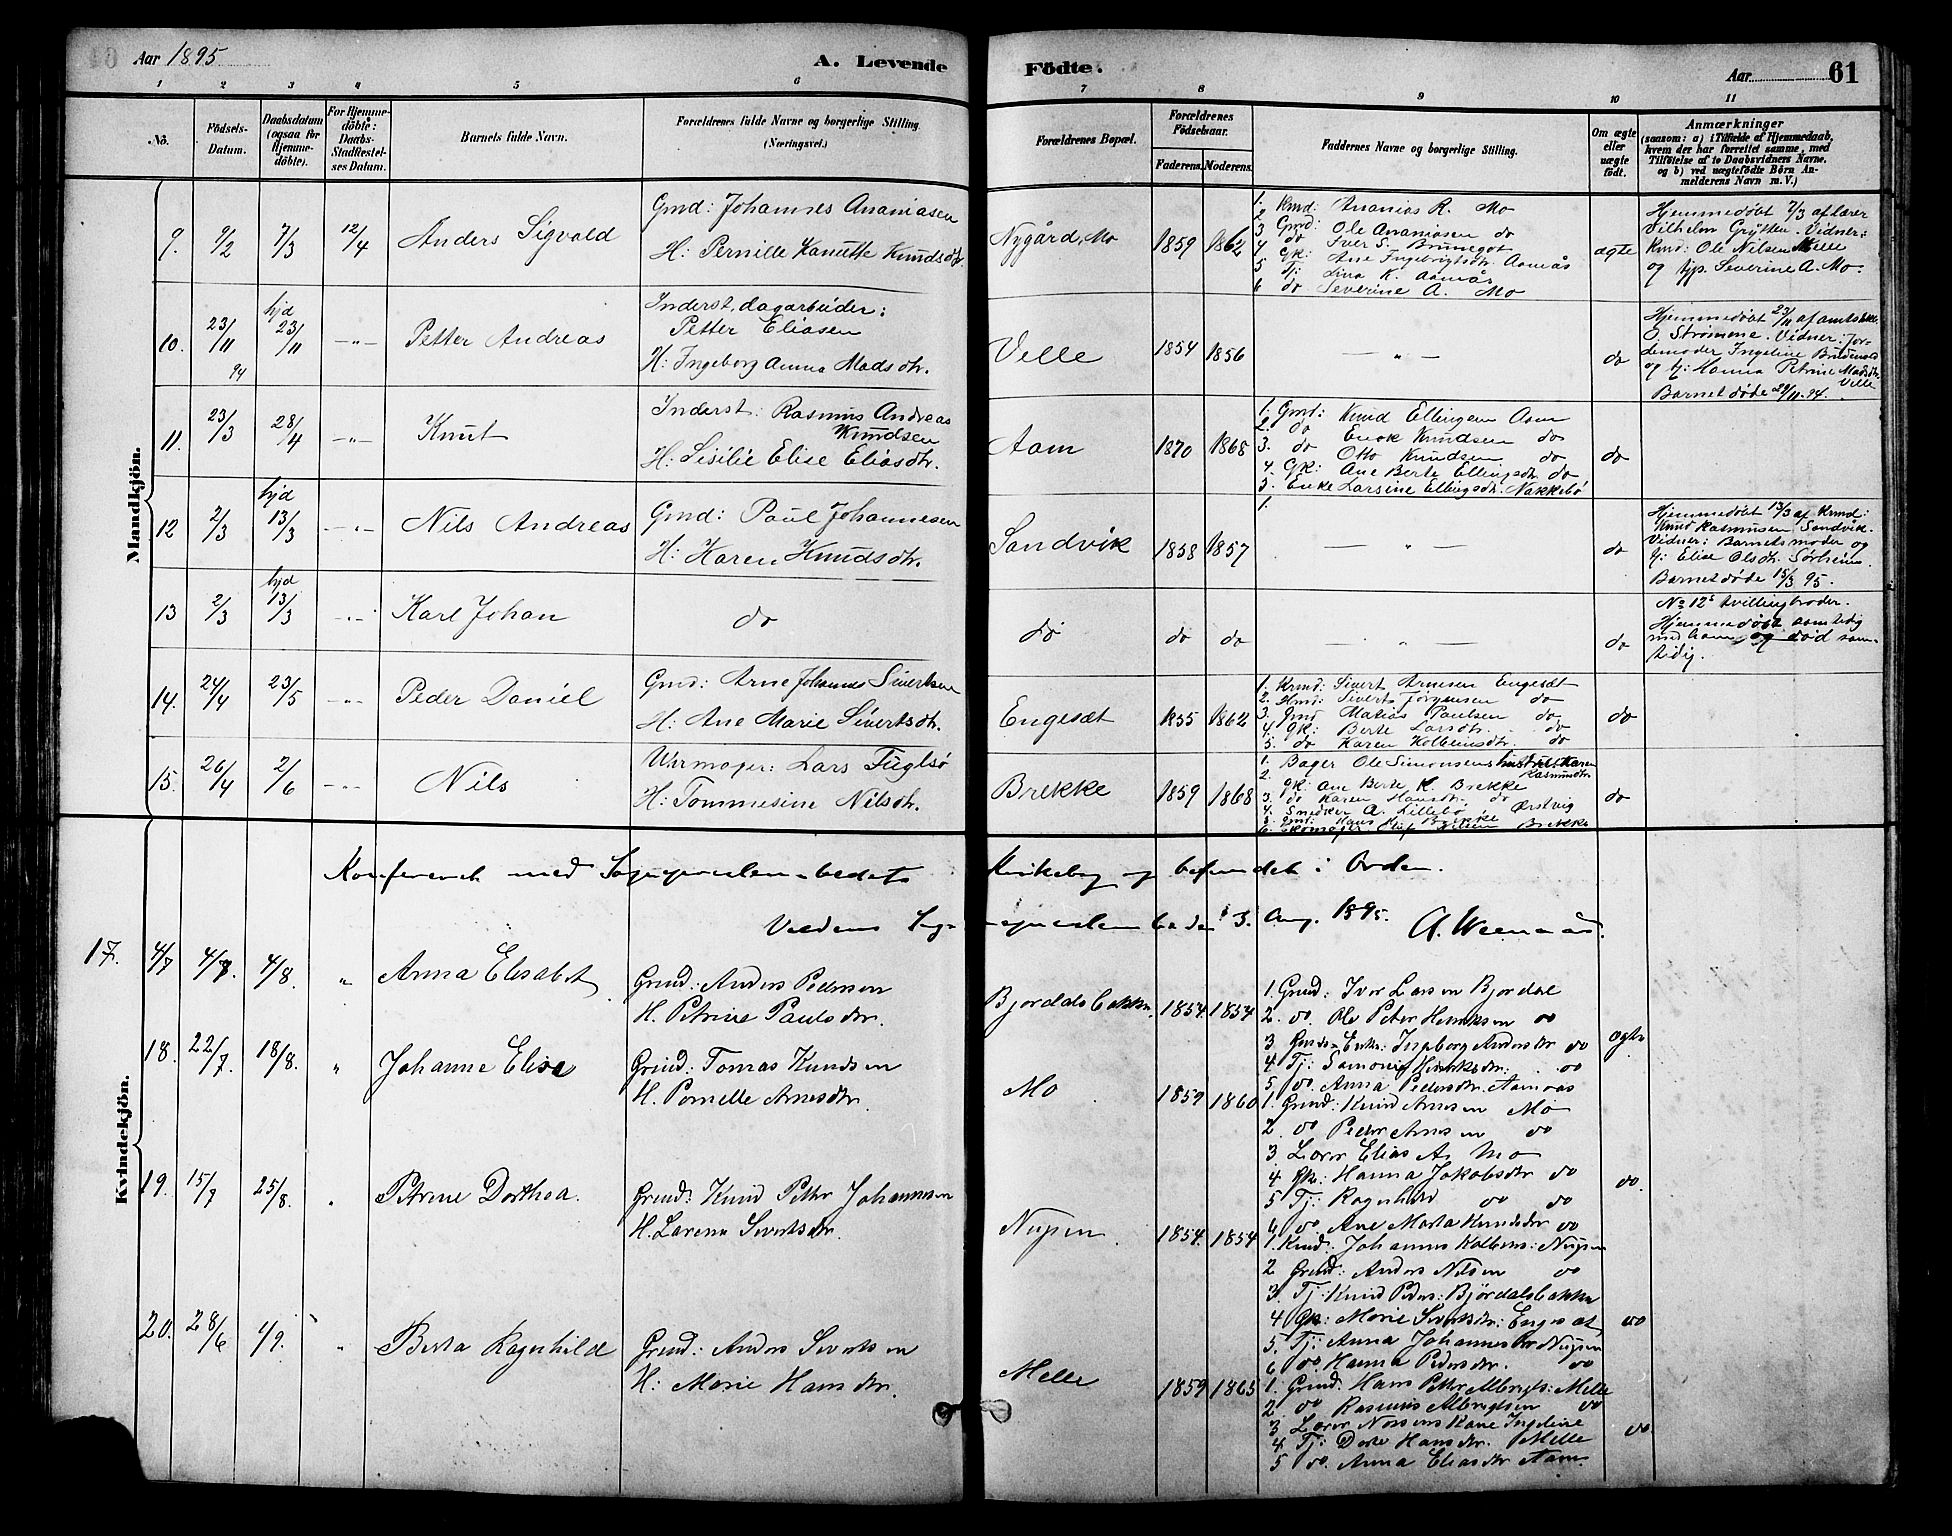 Aar 1895
A. Levende
Födte.
Aar
61
1 2 3 4 5 6 7 8 9 10 11
No.
Födsels-Datum.
Daabsdatum (ogsaa for Hjemme-döbte).
For Hjemme-döbte: Daabs-Stadfæstel-ses Datum.
Barnets fulde Navn.
Forældrenes fulde Navne og borgerlige Stilling. (Næringsvei.)
Forældrenes Bopæl.
Forældrenes Födselsaar.
Faderens. Moderens.
Faddernes Navne og borgerlige Stilling.
Om ægte eller uægte födt.
Anmærkninger
(saasom: a) i Tilfælde af Hjemmedaab,
hvem der har forrettet samme, med
Tilföielse af to Daabsvidners Navne,
og b) ved uægtefödte Börn An-
melderens Navn m. V.)
Mandkjön.
9. 9/2 7/3 12/4 Anders Sigvald
Gmd: Johannes Ananiasen
H: Pernille Kanutte Knudsdtr.
Nygård, Mo 1859 1862
1. Krmd: Ananias R. Mo
2 Gmd: Ole Ananiasen do
3 do Iver S. Brunegot
4 Gk: Ane Ingebrigtsdtr. Aamås
5 Tj: Lina K. Aamås
6 do Severine A. Mo
ægte
Hjemmedöbt 7/3 af lærer
Vilhelm Grytten. Vidner:
Krmd: Ole Nilsen Melle
og tjp. Severine A. Mo.
10. 23/11 94 hjd 23/11 -"- Petter Andreas
Inderst, dagarbeider:
Petter Eliasen
H: Ingeborg Anna Madsdtr.
Velle 1854 1856 -"- do
Hjemmedöbt 23/11 af amtskl.
O. Strømme. Vidner: Jor-
demoder Ingeline
og tj: Hanna Petrine Madsdtr.
Velle
Barnet døde 29/11.94.
11. 23/3 28/4 -"- Knut
Inderst: Rasmus Andreas
Knudsen
H: Sisilie Elise Eliasdtr.
Aam 1870 1868
1. Gmd: Knud Ellingsen Aam
2. do Enok Knudsen do
3. do Otto Knudsen do
4. Gk: Ane Berte Ellingsdtr. do
5. Enke Larsine Ellingsdtr. Nakkebø
do
12 2/3 hjd 13/3 -"- Nils Andreas
Gmd: Paul Johannesen
H: Karen Knudsdtr.
Sandvik 1858 1857
1.
-"- do
Hjemmedöbt 13/3 af Krmd:
Knud Rasmusen Sandvik.
Vidner: Barnets moder og
tj: Elise Olsdtr. Sørheim.
Barnet døde 15/3 95.
13 2/3 hjd 13/3 -"- Karl Johan
do
do do do -"- do
No 12s tvillingbroder.
Hjemmedöbt samtidig
med ham og død sam-
tidig.
14. 24/4 23/5 -"- Peder Daniel
Gmd: Arne Johannes Sivertsen
H: Ane Marie Sivertsdtr.
Engesæt 1855 1862
1. Krmd: Sivert Arnesen Engesæt
2. Hmd: Sivert Jørgensen do
3. Gmd Matias Paulsen do
4. Gk: Berte Larsdtr. do
5. do Karen Kolbeinsdtr. do
do
15. 26/4 2/6 -"- Nils
Urmager: Lars Fuglsø
H: Tommesine Nilsdtr.
Brekke 1859 1868
1. Bager Ole Simonsens hustru Karen
Rasmusdtr.
2. Gk: Ane Berte K. Brekke
3. do Karen Hansdtr. do
4. Snedker A. Lillebø Ørstvig
5. Gmd: Hans K. Brekke
6. Skomager Brekke
do
Konfereret med Sogneprestembedets Kirkebog og befundet i Orden.
Voldens Sogneprestembede 3. Aug. 1895. A.
Kvindekjön.
17. 4/7 4/7. 4/8. " Anna Elisabet
Grmd: Anders Pedersen
H. Petrine Paulsdtr.
Bjordalsbakken. 1854. 1854
1. Grmd: Iver Larsen Bjordal
2. do. Ole Peter Henriksen do
3 Grmds Enke: Ingeborg Andersdtr do
4 Tj: Henriksdtr: do
5. do. Anna Pedersdtr. Aamaas
ægte.
18. 22/7. 18/8. " Johanne Elise
Grmd: Tomas Knudsen
H. Pernelle Arnesdtr.
Mo 1859 1860
1. Grmd: Knud Arnesen Mo
2. do Peder Arnesen do
3 Lærer Elias A. Mo
4 Gk: Hanna Jakobsdtr do
5 Tj: Ragnhild do do
6 do. Ane Marta Knudsdtr do
do.
19. 15/7 25/8. " Petrine Dorthea.
Grmd: Knud Petter Johannesen
H. Larena Sivertsdtr.
Nupen. 1854. 1854
1. Krmd: Johannes Kolbens: Nupen
2 Grmd: Anders Nilsen do
3. Tj: Knud Peders: Bjørdalsbakke
4 Gk: Marie Sivertsdtr: Engesæt
5. Tj: Anna Johannesdtr Nupen
6 do. Hanna Pedersdtr. do
do
20. 28/6 1/9. " Berta Ragnhild
Grmd: Anders Sivertsen
H: Marie Hansdtr.
Melle 1859 1865
1. Grmd: Hans Petter Albrigts: Melle
2. do Rasmus Albrigtsen do
3 Lærer Nossens Kone Ingeline
4 Tj: Dorte Hansdtr. Melle
5 do. Anna Eliasdtr Aam.
do.